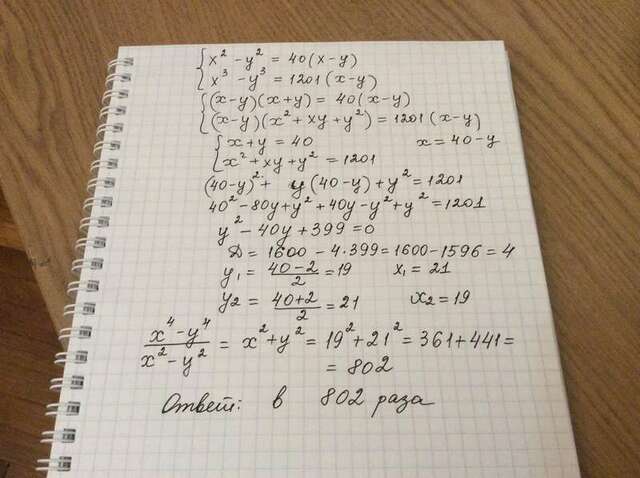 { x² - y² = 40(x-y)
{ x³ - y³ = 1201(x-y)
{ (x-y)(x+y) = 40(x-y)
{ (x-y)(x² + xy + y²) = 1201(x-y)
{ x+y = 40    x = 40-y
{ x² + xy + y² = 1201
(40-y)² + y(40-y) + y² = 1201
40² - 80y + y² + 40y - y² + y² = 1201
y² - 40y + 399 = 0
D = 1600 - 4·399 = 1600 - 1596 = 4
y₁ = (40-2)/2 = 19    x₁ = 21
y₂ = (40+2)/2 = 21    x₂ = 19
(x⁴ - y⁴)/(x² - y²) = x² + y² = 19² + 21² = 361 + 441 =
= 802
Ответ: в 802 раза